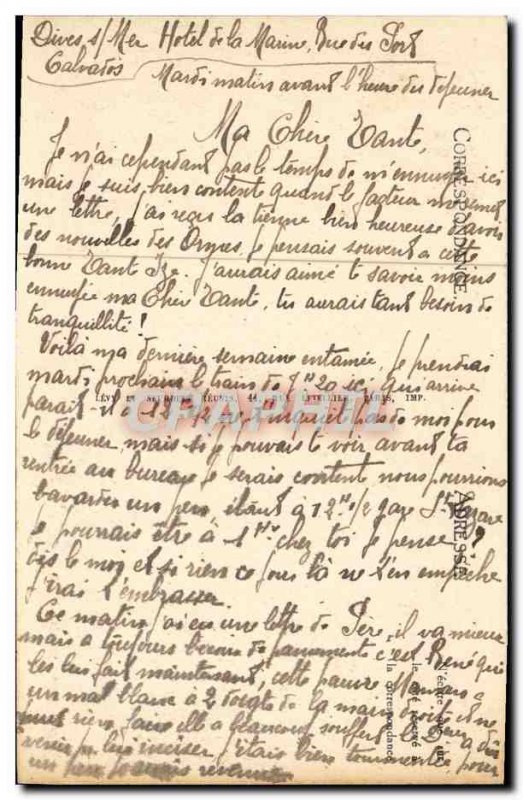 Dives s/Mer Hotel de la Marine, Rue du Port
Calvados
Mardi matin avant l'heure du déjeuner
Ma Chère Tante,
Je n'ai cependant pas le temps de m'ennuyer ici
mais je suis bien content quand le facteur
une lettre, j'ai reçu la tienne bien heureuse d'avoir
des nouvelles des je pensais souvent à cette
bonne Tante J'aurais aimé te savoir moins
ennuyée ma Chère Tante, tu aurais tant besoin de
tranquillité!
Voilà ma dernière semaine entamée, je prendrai
mardi prochain le train de 7H20 ici, qui arrive
LÉVY ET NEURDEIN RÉUNIS, 44, RUE LETELLIER, PARIS, IMP.
parait-il à 12H12 ne t'inquiète pas de moi pour
le déjeuner, mais si je pouvais te voir avant ta
rentrée au bureau je serais content nous pourrions
bavarder un peu, étant à 12H 1/2 gare St Lazare
je pourrais être à 1H chez toi je pense?
dis le moi et si rien ce jour là ne t'en empêche
j'irai t'embrasser.
Ce matin j'ai eu une lettre de Père, il va mieux
mais a toujours besoin de pansements c'est René qui
les lui fait maintenant, cette pauvre a
un mal blanc à 2 doigts de la main droite et ne
peut rien faire elle a beaucoup souffert le a dû
venir lui inciser j'étais bien tourmentée, pour
un peu je serais revenue
CORRESPONDANCE
ADRESSE
CPAPHIL